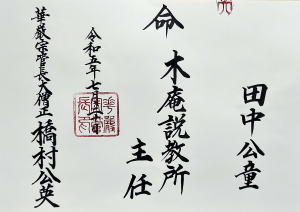 田中公童
命 木庵説教所
主任
令和五年七月五十日
華厳宗管長大僧正 橋村公英